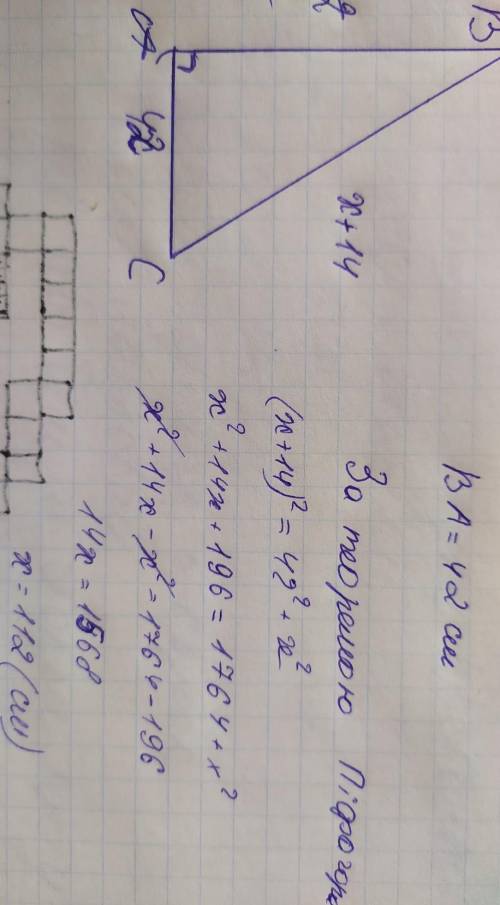 B
A
42
C
x+14
BA = 42 см
За теоремою
(x+14)² = 42² + x²
x² + 14x + 196 = 1764 + x²
x² + 14x - x² = 1764 - 196
14x = 1568
x = 112 (см)